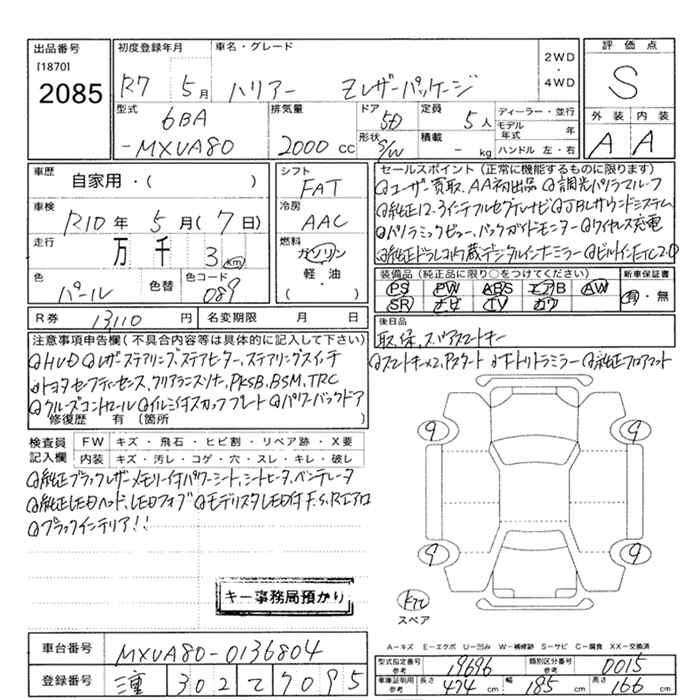 出品番号 初度登録年月 車名・グレード 2WD・4WD 評価点
[1870]
2085 R7年5月 ハリアー Zレザーパッケージ S
型式 排気量 ドア 定員 ディーラー・並行 外装 内装
6BA 5D 5人 モデル年式 年 A A
-MXUA80 2000cc 形状 S/W 積載 - kg ハンドル 左・右
車歴 自家用・( ) シフト FAT セールスポイント(正常に機能するものに限ります)
◎ユーザー買取、AA初出品 ◎調光パノラマルーフ
車検 R10年5月(7日) 冷房 AAC
◎純正12.3インチフルセグTVナビ ◎JBLサウンドシステム
走行 万 千 3km 燃料 ガソリン・軽油・( )
◎パノラミックビュー、バックガイドモニター ◎ワイヤレス充電
◎純正ドラレコ内蔵デジタルインナーミラー ◎ビルトインETC2.0
色 パール 色替 色コード 089 装備品(純正品に限り○をつけてください) 新車保証書
PS PW ABS エアB AW 有・無
SR ナビ TV カワ
R券 13,110円 名変期限 月 日 後日品
取、保、スペアスマートキー
注意事項申告欄(不具合内容等は具体的に記入して下さい)
◎スマートキー×2、Pスタート ◎オートリトラミラー ◎純正フロアマット
◎HUD ◎レザーステアリング、ステアヒーター、ステアリングスイッチ
◎トヨタセーフティーセンス、クリアランスソナー、PKSB、BSM、TRC
◎クルーズコントロール ◎イルミ付スカッフプレート ◎パワーバックドア
修復歴 有 〔箇所 〕
検査員記入欄 FW キズ・飛石・ヒビ割・リペア跡・X要
内装 キズ・汚レ・コゲ・穴・スレ・キレ・破レ
◎純正ブラックレザーメモリー付パワーシート、シートヒータ、ベンチレータ
◎純正LEDヘッド、LEDフォグ ◎モデリスタLED付F、S、Rエアロ
◎ブラックインテリア!!
9 9
9 9
キー事務局預かり
スペア
A−キズ E−エクボ U−凹み W−補修跡 S−サビ C−腐食 XX−交換済
車台番号 MXUA80-0136804 型式指定番号 参考 19696 類別区分番号 参考 0015
登録番号 三重 302 て 7095 車庫証明用 参考 長さ 474cm 幅 185cm 高さ 166cm